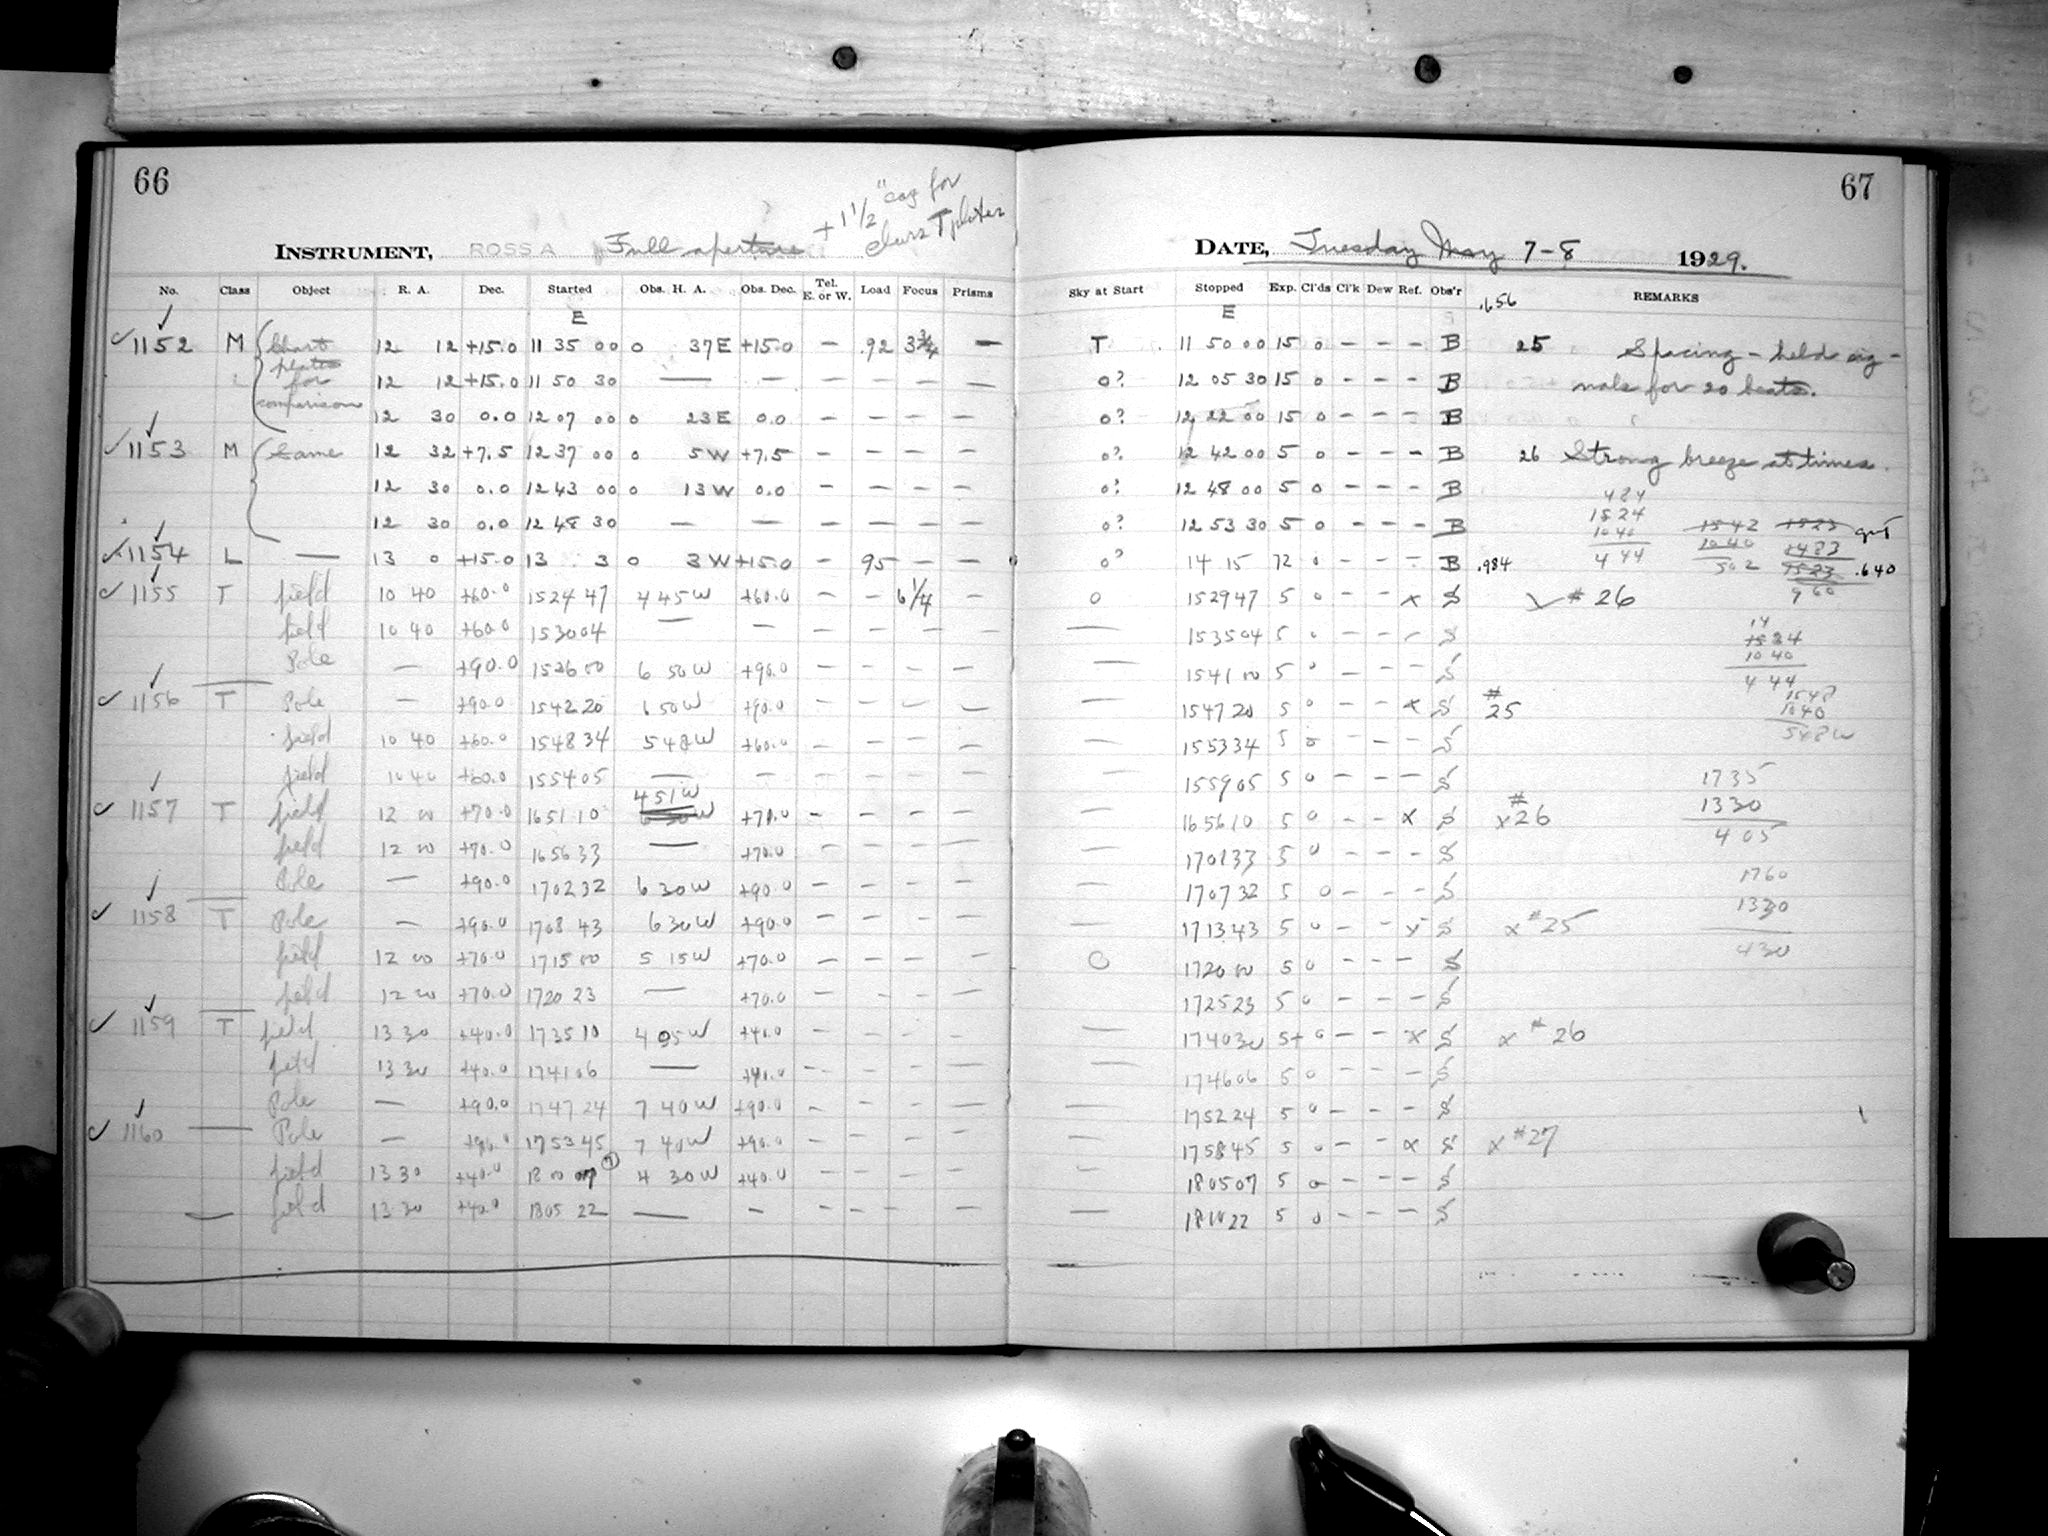 66
+ 1 1/2" cag for
class T plates
INSTRUMENT, ROSS A Full aperture
No. Class Object R. A. Dec. Started Obs. H. A. Obs. Dec. Tel. E. or W. Load Focus Prisms
E
1152 M Chart plates for comparison 12 12 +15.0 11 35 00 0 37 E +15.0 — .92 3 3/4 —
12 12 +15.0 11 50 30 — — — — — —
12 30 0.0 12 07 00 0 23 E 0.0 — — — —
1153 M Same 12 32 +7.5 12 37 00 0 5 W +7.5 — — — —
12 30 0.0 12 43 00 0 13 W 0.0 — — — —
12 30 0.0 12 48 30 — — — — — —
1154 L — 13 0 +15.0 13 3 0 3 W +15.0 — 95 — —
1155 T field 10 40 +60.0 15 24 47 4 45 W +60.0 — — 6 1/4 —
field 10 40 +60.0 15 30 04 — — — — — —
Pole — +90.0 15 26 00 6 50 W +90.0 — — — —
1156 T Pole — +90.0 15 42 20 6 50 W +90.0 — — — —
field 10 40 +60.0 15 48 34 5 48 W +60.0 — — — —
field 10 40 +60.0 15 54 05 — — — — — —
4 51 W
1157 T field 12 00 +70.0 16 51 10 +70.0 — — — —
field 12 00 +70.0 16 56 33 — +70.0 — — — —
Pole — +90.0 17 02 32 6 30 W +90.0 — — — —
1158 T Pole — +90.0 17 08 43 6 30 W +90.0 — — — —
field 12 00 +70.0 17 15 00 5 15 W +70.0 — — — —
field 12 00 +70.0 17 20 23 — +70.0 — — — —
1159 T field 13 30 +40.0 17 35 10 4 05 W +40.0 — — — —
field 13 30 +40.0 17 41 06 — +40.0 — — — —
Pole — +90.0 17 47 24 7 40 W +90.0 — — — —
1160 — Pole — +90.0 17 53 45 7 40 W +90.0 — — — —
field 13 30 +40.0 18 00 07 4 30 W +40.0 — — — —
field 13 30 +40.0 18 05 22 — — — — —
67
DATE, Tuesday May 7-8 1929.
Sky at Start Stopped Exp. Cl'ds Cl'k Dew Ref. Obs'r REMARKS
E .656
T 11 50 00 15 0 — — — B 25 Spacing - held sig-
0? 12 05 30 15 0 — — — B nals for 20 beats.
0? 12 22 00 15 0 — — — B
0? 12 42 00 5 0 — — — B 26 Strong breeze at times.
0? 12 48 00 5 0 — — — B
0? 12 53 30 5 0 — — — B
0? 14 15 72 0 — — — B .984
0 15 29 47 5 0 — — x S # 26
— 15 35 04 5 0 — — — S
— 15 41 00 5 0 — S
— 15 47 20 5 0 — — x S # 25
— 15 53 34 5 0 — — — S
— 15 59 05 5 0 — — — S
— 16 56 10 5 0 — — x S x # 26
— 17 01 33 5 0 — — — S
— 17 07 32 5 0 — — — S
— 17 13 43 5 0 — — x S x # 25
0 17 20 00 5 0 — — — S
17 25 23 5 0 — — — S
— 17 40 30 5+ 0 — — x S x # 26
— 17 46 06 5 0 — — — S
— 17 52 24 5 0 — — — S
17 58 45 5 0 — — x S x # 27
— 18 05 07 5 0 — — — S
— 18 10 22 5 0 — — — S
1524
1040
4 44
.640
1040
4 44
1548
1040
5 48 W
1735
1330
4 05
1760
1330
430